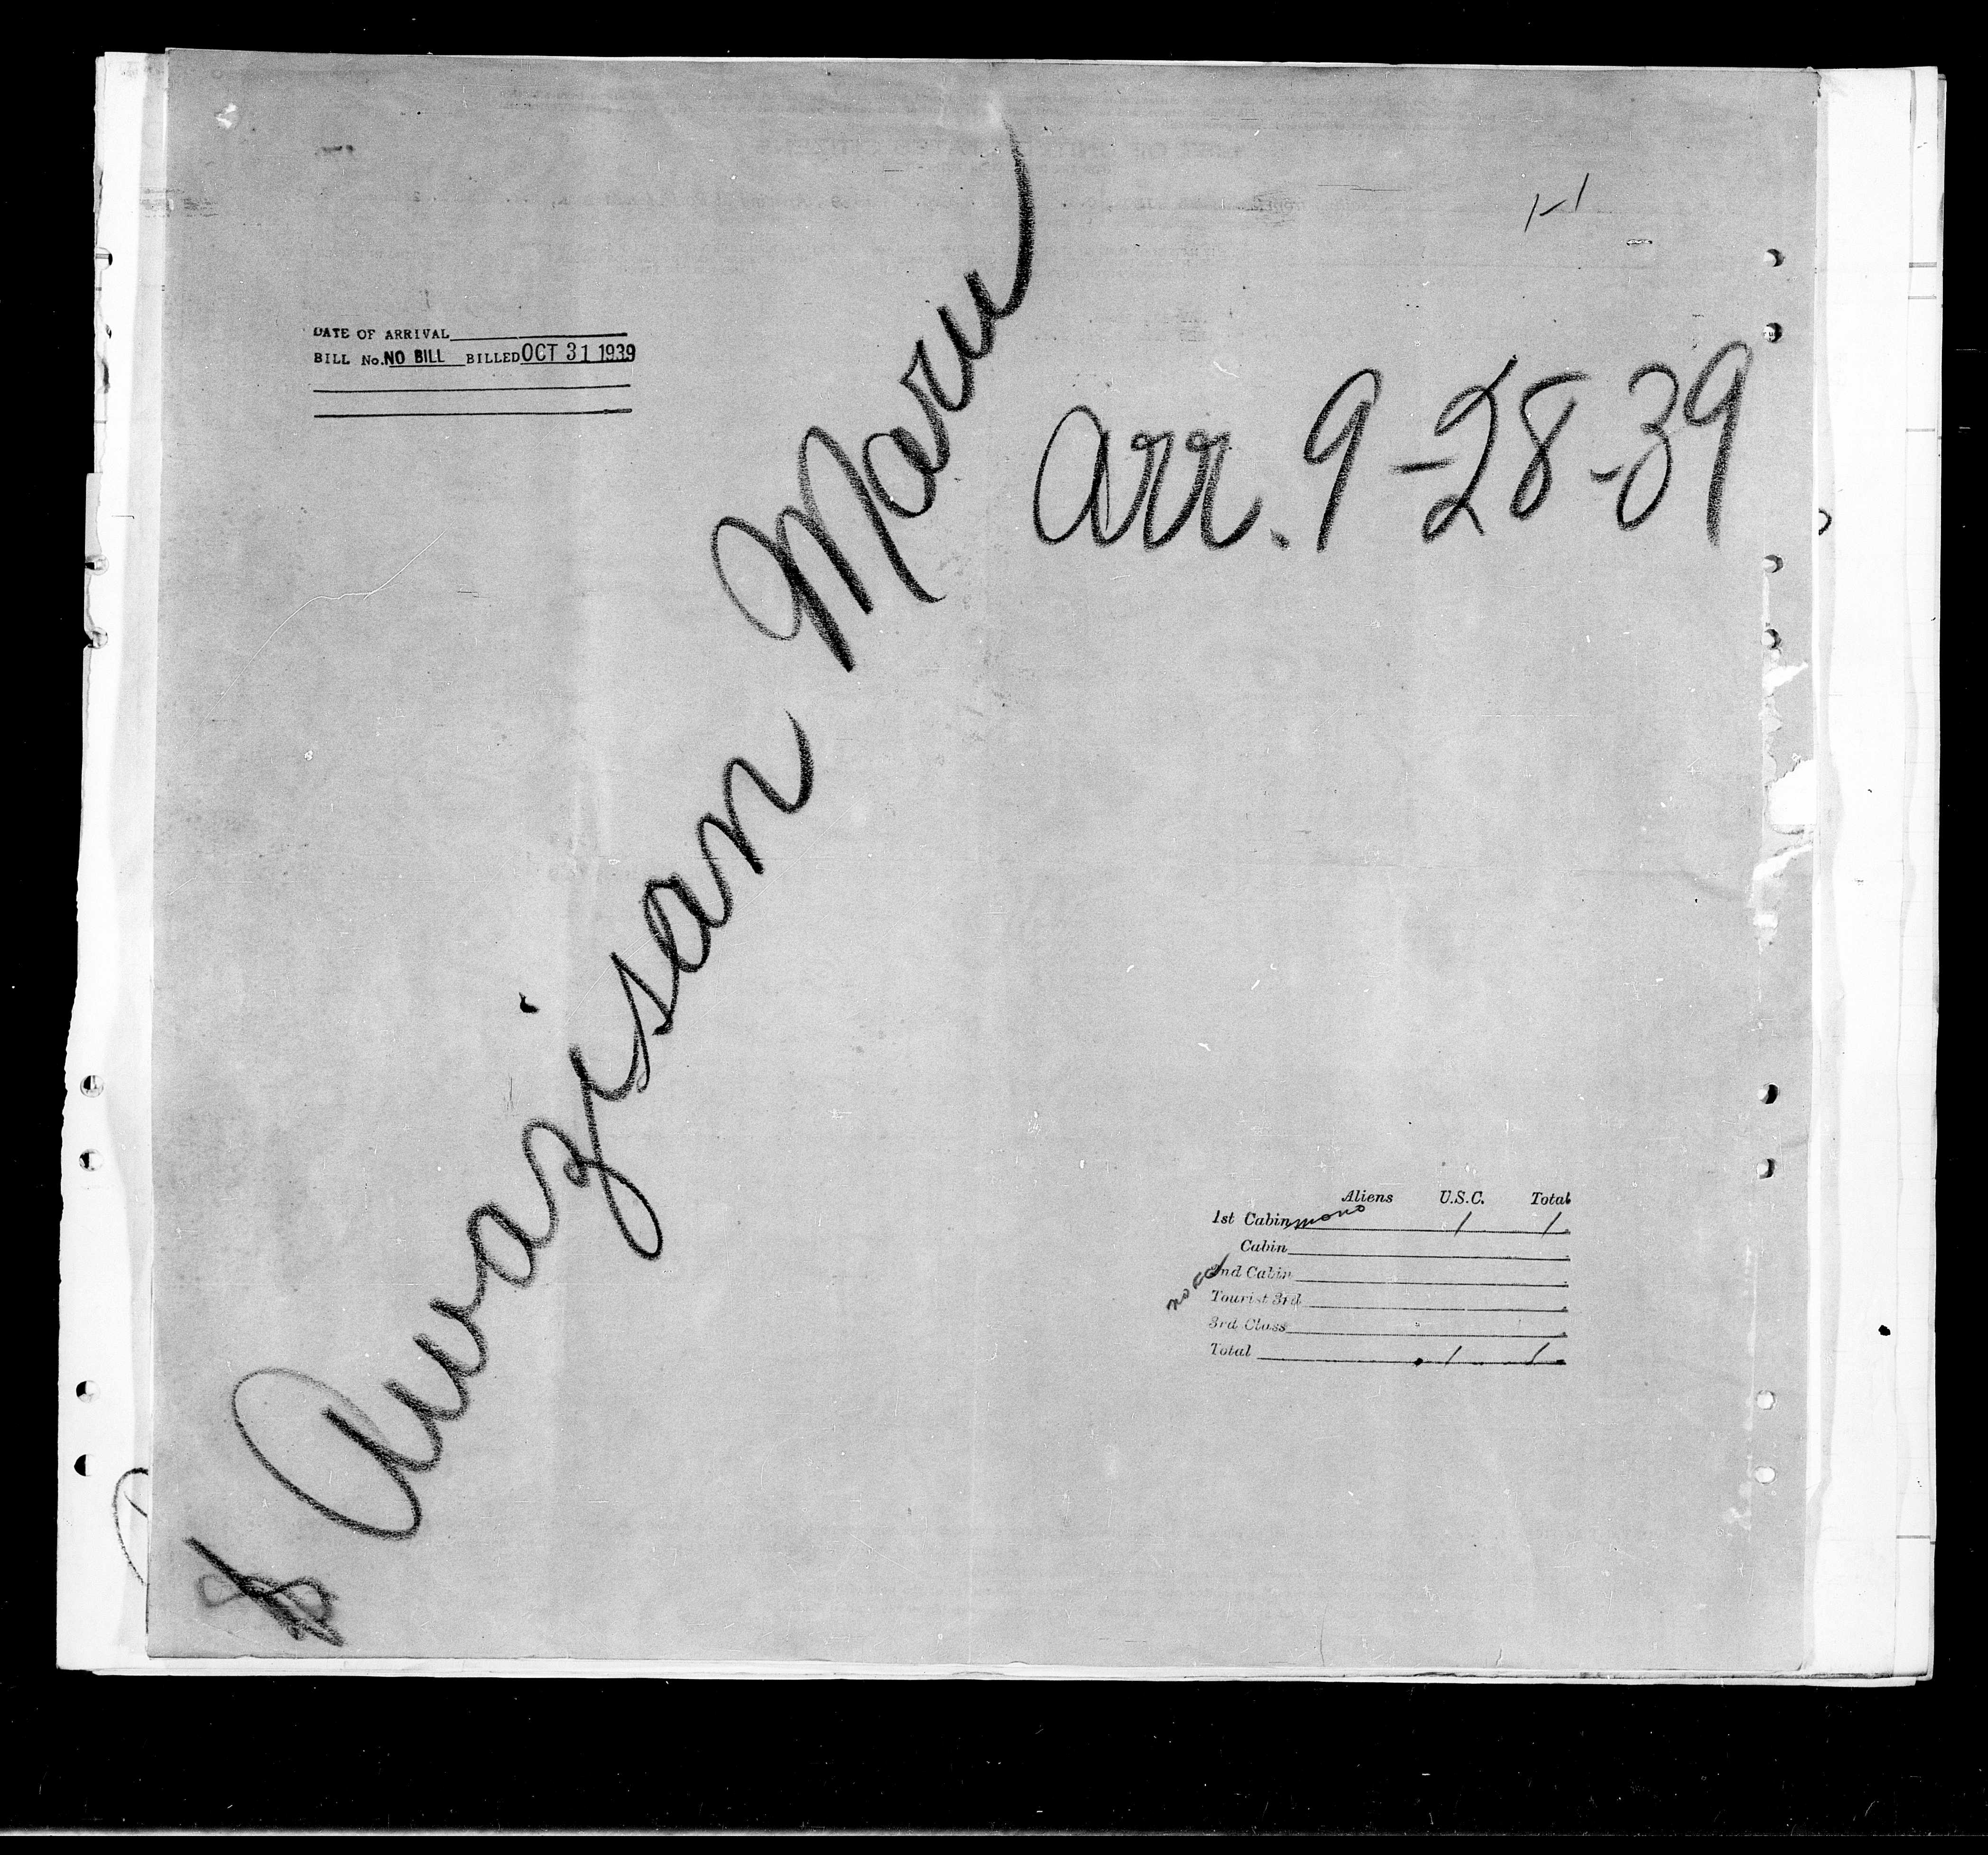 1-1
DATE OF ARRIVAL
BILL No. NO BILL BILLED OCT 31 1939
Awazisan Maru
arr. 9-28-39
Aliens U.S.C. Total
1st Cabin 1 1
Cabin
2nd Cabin
Tourist 3rd
3rd Class
Total 1 1